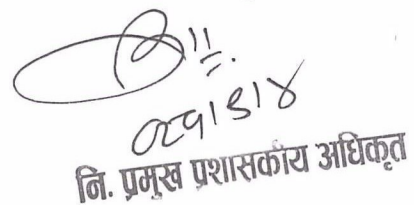 ०८१।९।४
नि. प्रमुख प्रशासकीय अधिकृत